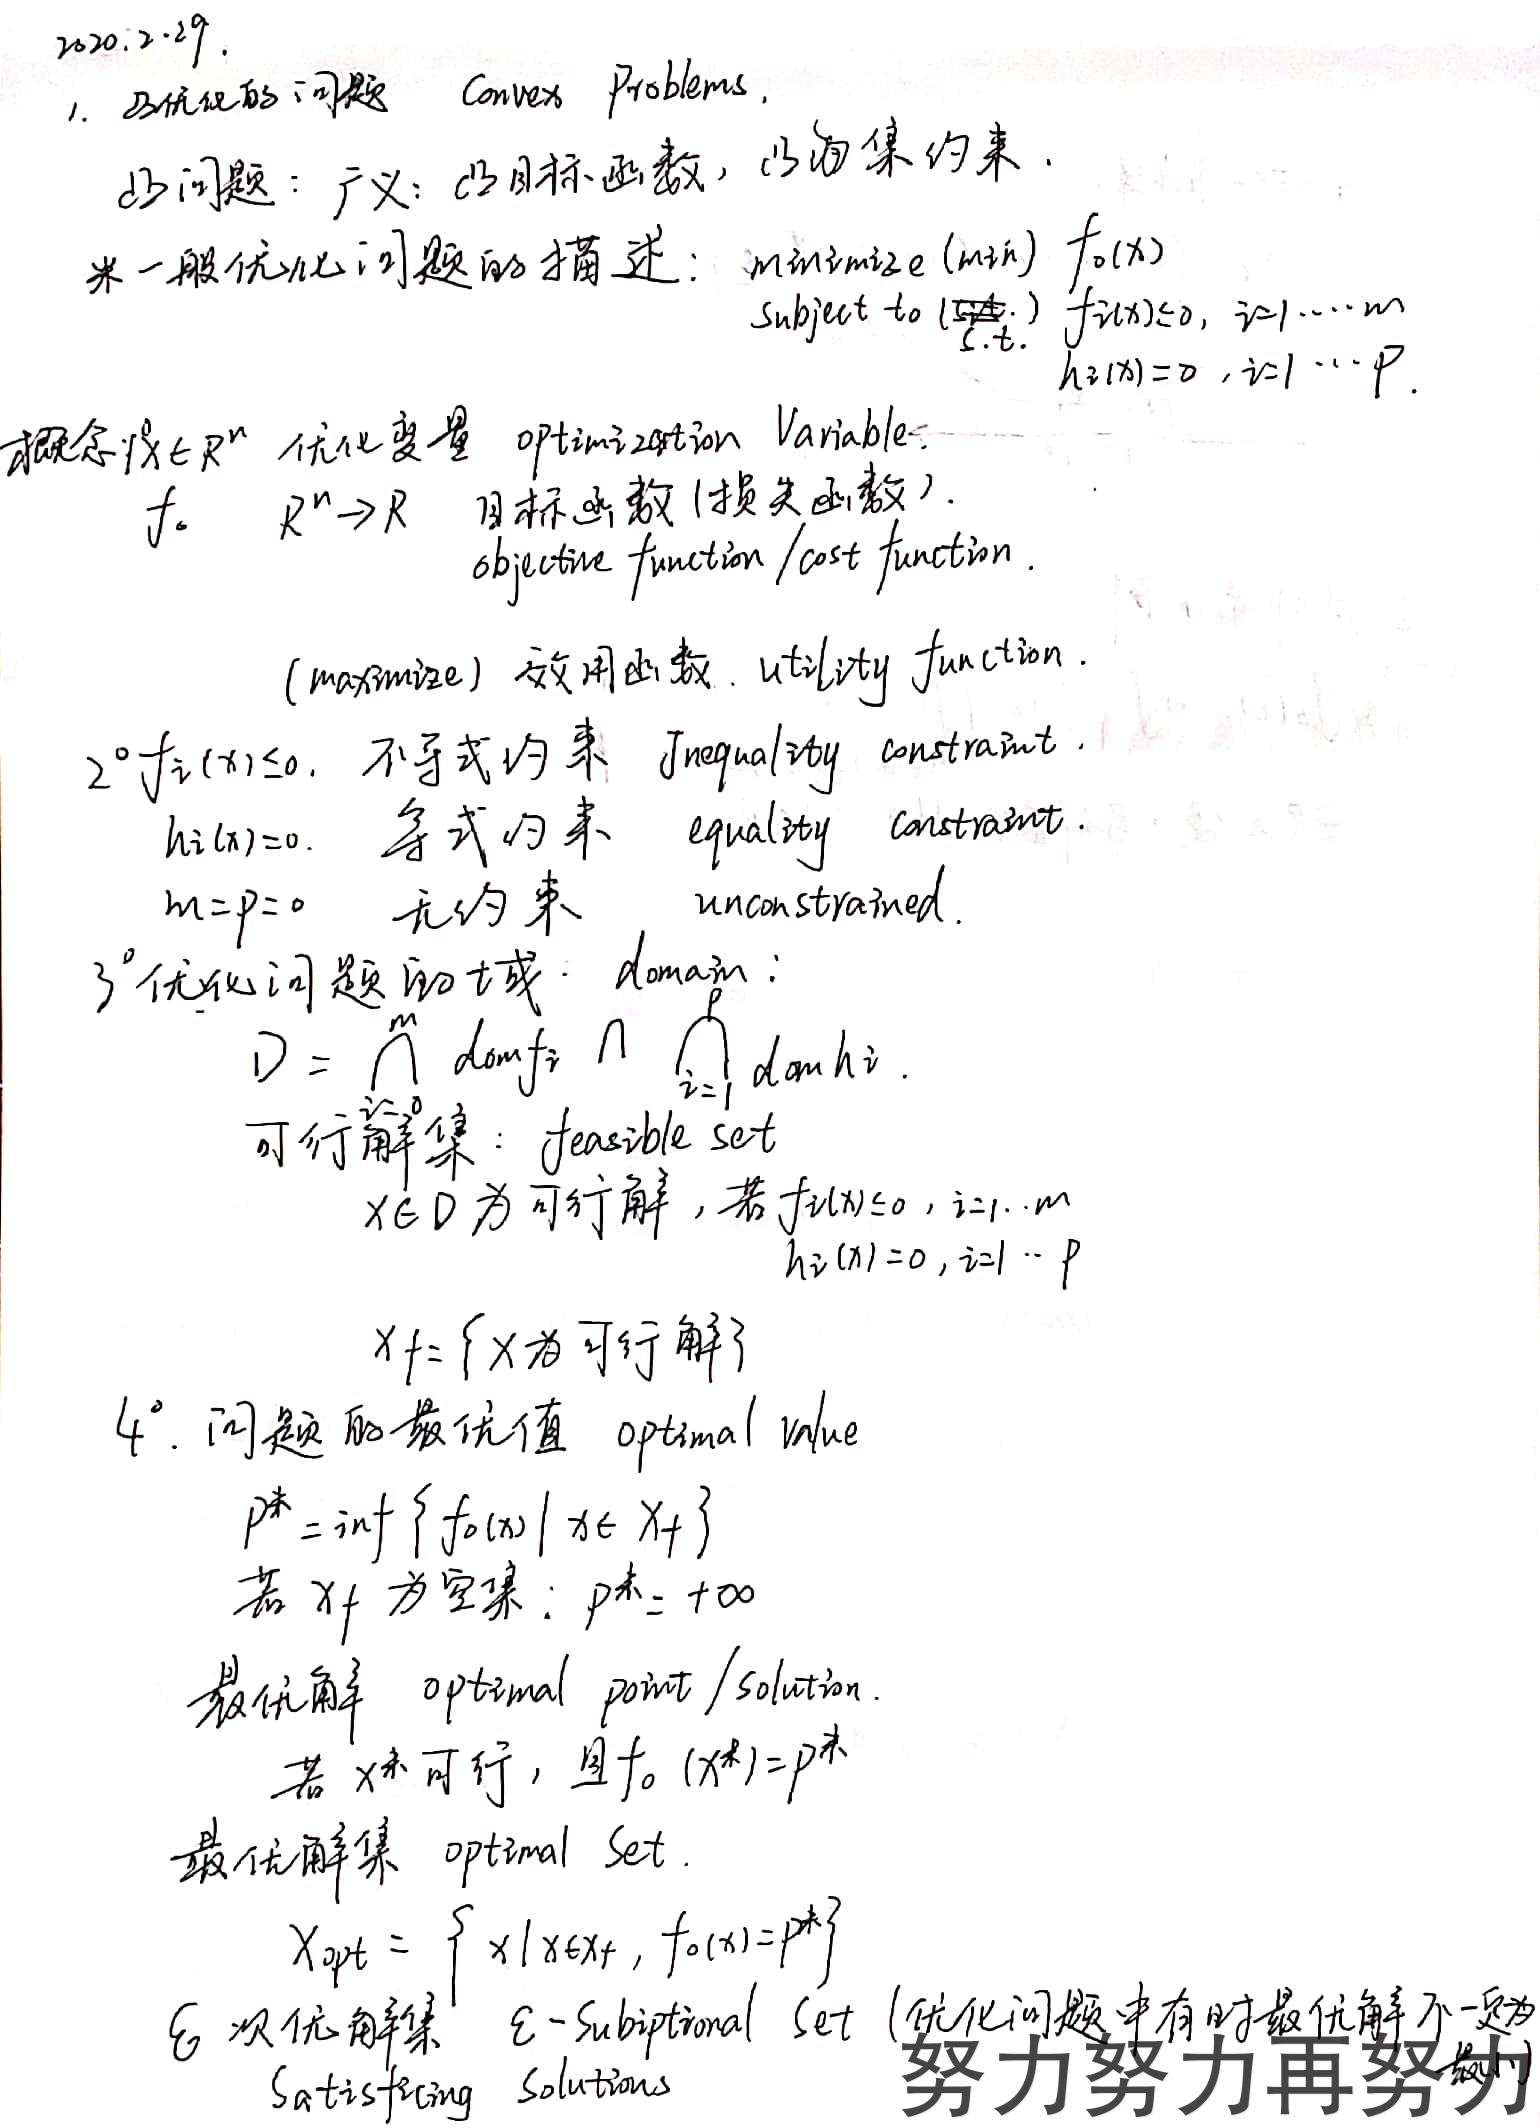 2020.2.29.
1. 凸优化的问题 Convex Problems.
凸问题: 广义: 凸目标函数, 凸集约束.
米一般优化问题的描述: minimize (min) f₀(x)
subject to (s.t.) fi(x)≤0, i=1.....m
hi(x)=0, i=1...p.
概念 1° x∈Rⁿ 优化变量 optimization Variable.
f₀ Rⁿ→R 目标函数(损失函数).
objective function/cost function.
(maximize) 效用函数. utility function.
2° fi(x)≤0. 不等式约束 Inequality constraint.
hi(x)=0. 等式约束 equality constraint.
m=p=0 无约束 unconstrained.
3° 优化问题的域: domain:
D = ⋂ᵢ₌₀ᵐ domfi ∩ ⋂ᵢ₌₁ᵖ domhi.
可行解集: feasible set
x∈D为可行解, 若 fi(x)≤0, i=1..m
hi(x)=0, i=1..p
Xf={X为可行解}
4°. 问题的最优值 optimal value
P* = inf {f₀(x) | x∈Xf}
若 Xf 为空集: P* = +∞
最优解 optimal point/solution.
若 x* 可行, 且f₀(x*)=P*
最优解集 optimal set.
Xopt = {x|x∈Xf, f₀(x)=P*}
ε 次优解集 ε-Subiptional Set (优化问题中有时最优解不一定为
最小)
Satisficing solutions
努力努力再努力